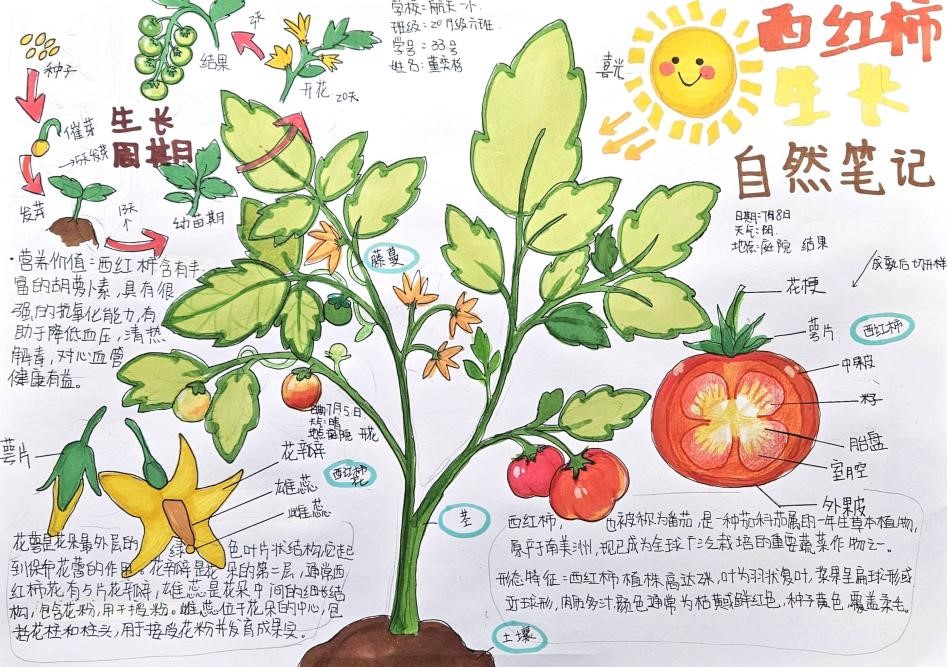 学校:航天一小
班级:20 级六班
学号:33号
姓名:董奕格
西红柿
生长
自然笔记
喜光
种子
催芽
→5天发芽
发芽
13天
个
幼苗期
开花 20天
结果
生长
周期
日期:7月8日
天气:阴
地点:庭院 结果
成熟后切开样
·营养价值:西红柿含有丰
富的胡萝卜素,具有很
强的抗氧化能力,有
助于降低血压,清热
解毒,对心血管
健康有益。
藤蔓
花梗
萼片
西红柿
中果皮
籽
胎盘
室腔
外果皮
日期:7月5日
天气:晴
地点:庭院 开花
萼片
花瓣
雄蕊
雌蕊
西红柿
花
茎
土壤
花萼是花朵最外层的 绿 色叶片状结构,它起
到保护花蕾的作用。花瓣是花朵的第二层,通常西
红柿花有5片花瓣,雄蕊是花朵中间的细长结
构,包含花粉,用于授粉。雌蕊位于花朵的中心,包
括花柱和柱头,用于接受花粉并发育成果实。
西红柿, 也被称为番茄,是一种茄科茄属的一年生草本植物,
原产于南美洲,现已成为全球广泛栽培的重要蔬菜作物之一。
形态特征:西红柿植株高达2米,叶为羽状复叶,浆果呈扁球形或
近球形,肉质多汁,颜色通常为桔黄或鲜红色,种子黄色,覆盖柔毛。